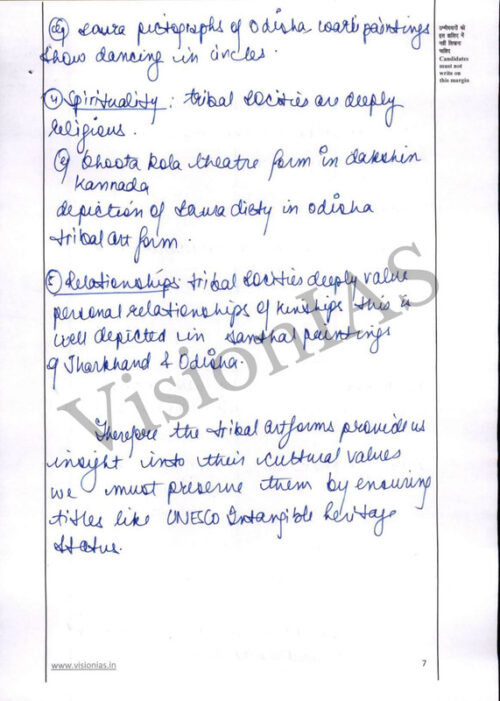 eg Saura pictographs of Odisha warli paintings
show dancing in circles.
4) Spirituality : tribal socities are deeply
religious.
eg bhoota kola theatre form in dakshin
kannada
depiction of Saura diety in odisha
tribal art form.
5) Relationships: tribal socities deeply value
personal relationships of kinships this is
well depicted in santhal paintings
of Jharkhand & Odisha.
Therefore the tribal artforms provide us
insight into their cultural values
we must preserve them by ensuring
titles like UNESCO Intangible heritage
status.
उम्मीदवारों को
इस हाशिए में
नहीं लिखना
चाहिए
Candidates
must not
write on
this margin
VisionIAS
www.visionias.in
7